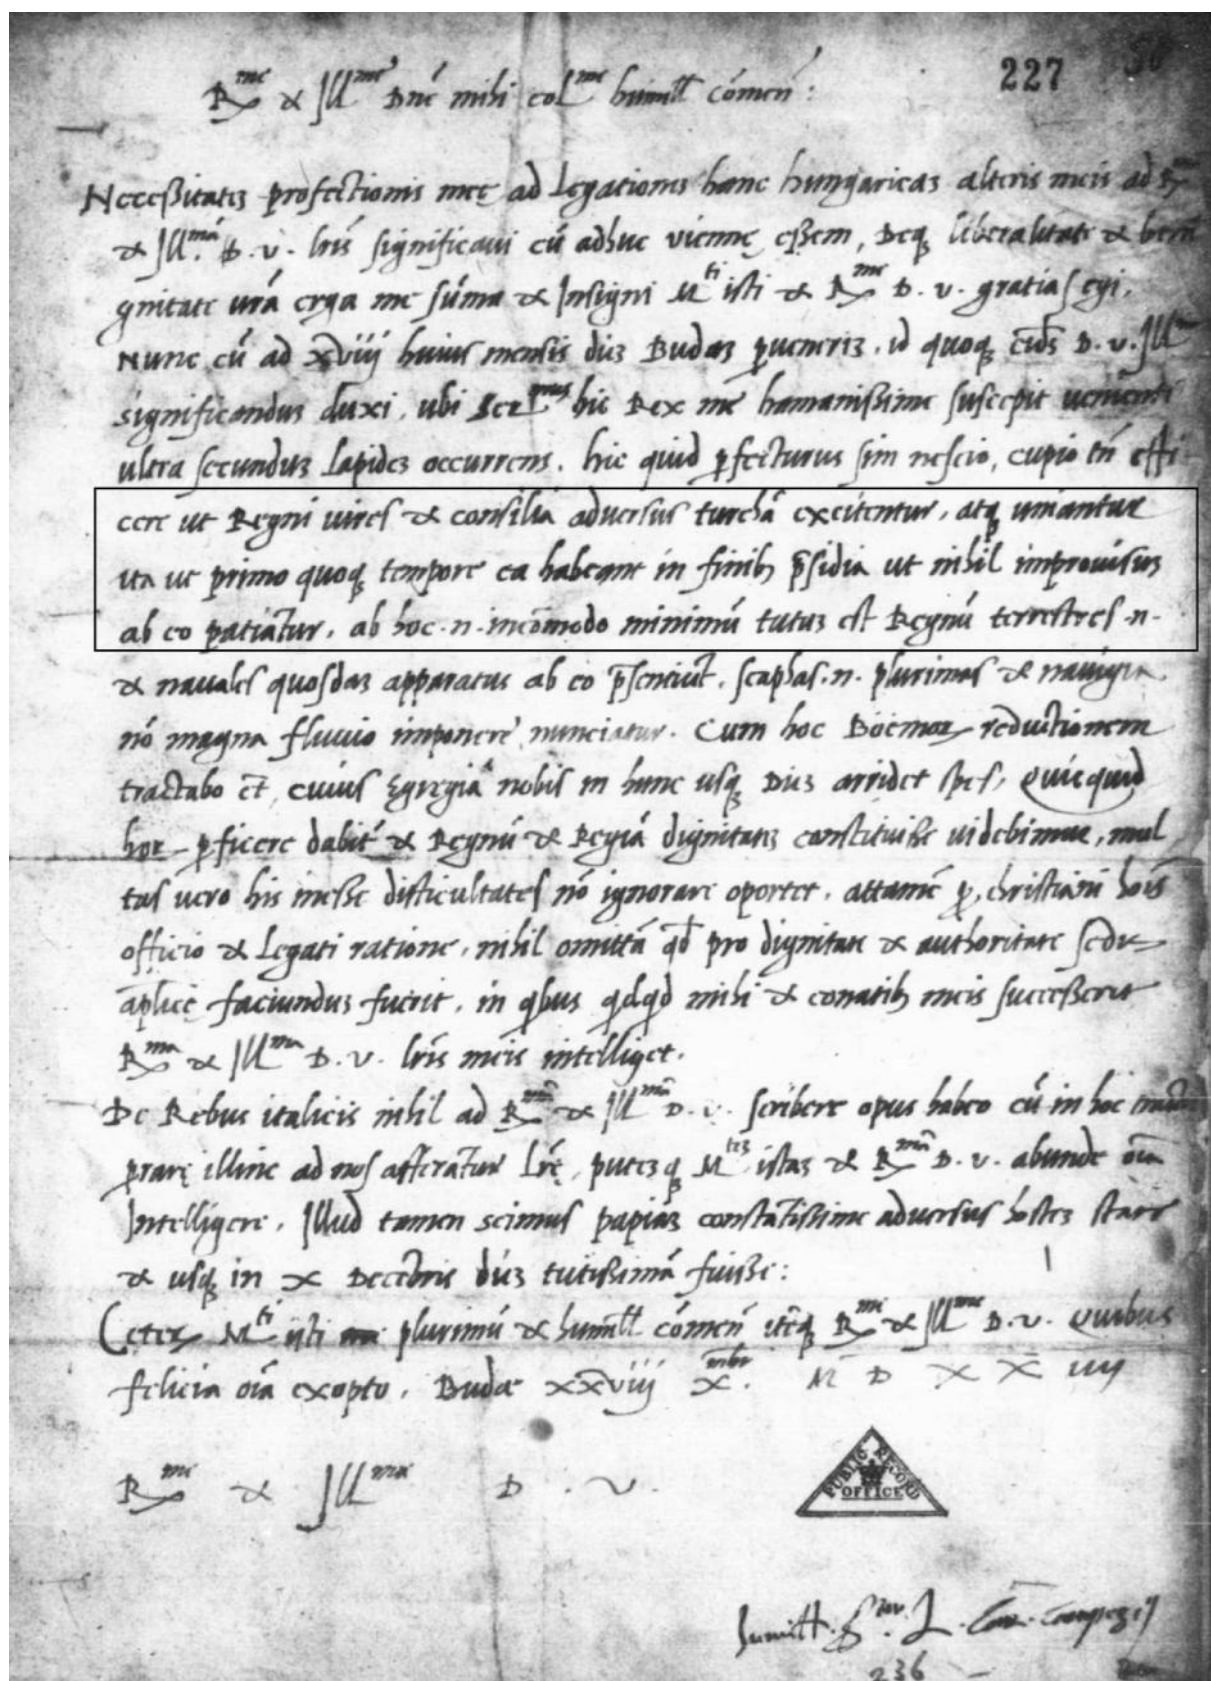 R^me & Ill^me Dne mihi col^me humill comen:
227
Necessitatem profectionis meę ad Legationem hanc hungaricam alteris meis ad R^m
& Ill.^mā D. v. lris significavi cū adhuc viennę essem, Deq liberalitate & beni
gnitate vrā erga me sūma & Insigni M^ti isti & R^me D. v. gratias egi.
Nunc cū ad xviij huius mensis diem Budam pvenerim, id quoq eidē D. v. Ill
significandum duxi, ubi Ser^mus hic Rex me humanissime suscepit venienti
ultra secundum Lapidem occurrens. hic quid pfecturus sim nescio, cupio tn effi
cere ut Regni vires & consilia adversus turchā excitentur, atq uniantur
ita ut primo quoq tempore ea habeant in finib psidia ut nihil improvisum
ab eo patiātur, ab hoc .n. incōmodo minimū tutum est Regnū terrestres .n.
& navales quosdam apparatus ab eo psentiūt. scaphas .n. plurimas & navigia
nō magna fluvio imponere nunciatur. Cum hoc Boemor reductionem
tractabo et, cuius Egregia nobis in hunc usq Diem arridet spes, Quicquid
hor pficere dabit & Regnū & Regiā dignitatem constituisse videbimur, mul
tas vero his inesse difficultates nō ignorare oportet, attamē p christiani hois
officio & Legati ratione, nihil omittā qd pro dignitate & authoritate sedis
aplicę faciundum fuerit, in qbus qdqd mihi & conatib meis successerit
R^ma & Ill^ma D. v. lris meis intelliget.
De Rebus italicis nihil ad R^mā & Ill^mā D. v. scribere opus habeo cū in hoc
prarę illinc ad nos afferātur Lrę, putemq M^tem istam & R^mā D. v. abunde oīa
Intelligere. Illud tamen scimus papiam constātissime adversus hostem stare
& usq in x Decēbris diem tutissimā fuisse:
Ceter M^ti isti plurimū & humill cōmen itēq R^me & Ill^me D. v. Quibus
felicia oīa exopto. Budae xxviij x^mbr. M D X X iiij
R^me & Ill^mae D. v.
PUBLIC RECORD OFFICE
humill. S^tor. L. Car. Campegij
236